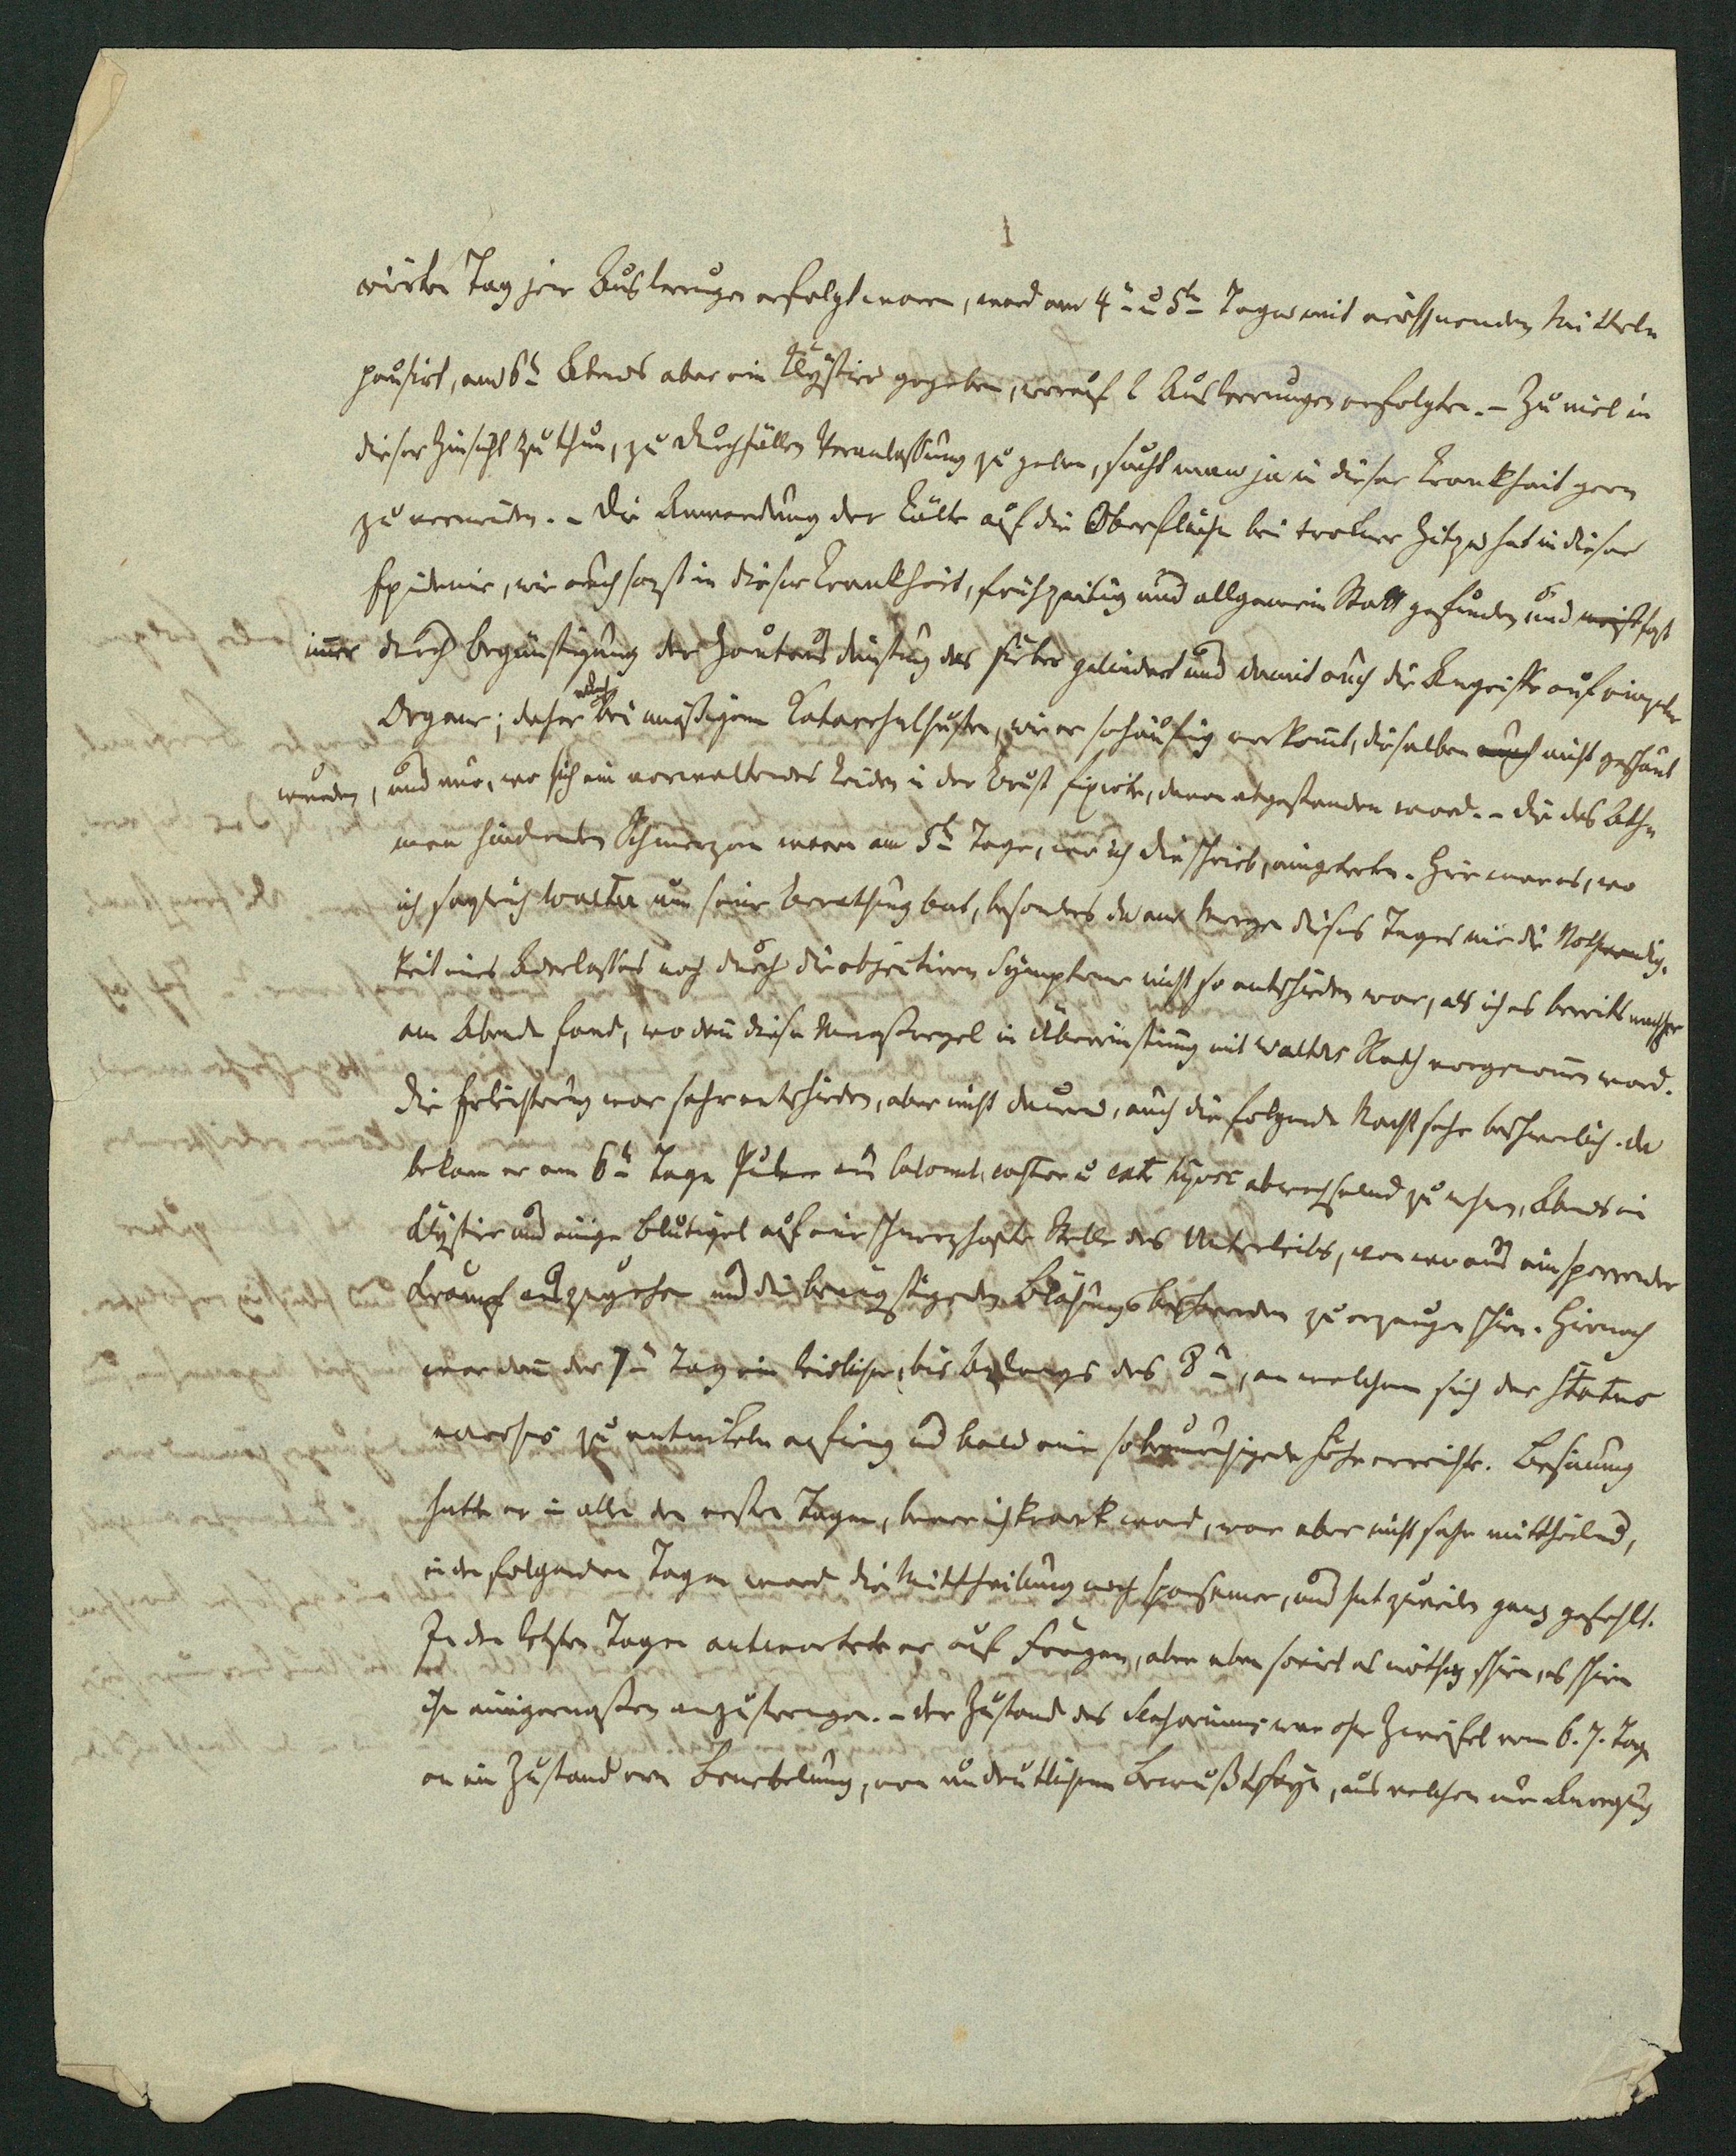 1
vierten Tag jene Ausleerungen erfolgt waren, ward am 4n u 5tn Tage mit eröffnenden Mitteln
pausirt, am 6tn Abends aber ein Klystier gegeben, worauf 2 Ausleerungen erfolgten. – Zu viel in
dieser Hinsicht zu thun, zu Durchfällen Veranlassung zu geben, sucht man ja in dieser Krankheit gern
zu vermeiden. – Die Anwendung der Kälte auf die Oberfläche bei trokner Hitze hat in dieser
Epidemie, wie auch sonst in dieser Krankheit, frühzeitig und allgemein Statt gefunden und meist fast
immer durch Begünstigung der Hautausdünstung das Fieber gelindert und damit auch die Angriffe auf einzelne
Organe; daher bei mäßigem Katarrhalhusten, wie er so häufig vorkomt, dieselben auch nicht gescheut
wurden, und nur, wo sich ein vorwaltendes Leiden in der Brust fixirte, davon abgestanden ward. – Die das Ath
men hindernden Schmerzen waren am 5tn Tage, wo ich dir schrieb, eingetreten. Hier war es, wo
ich sogleich Walter um seine Berathung bat, besonders da am Morgen dieses Tages mir die Nothwendig-
keit eines Aderlasses noch durch die objectiven Symptome nicht so entschieden war, als ich es bereits nachher
am Abende fand, wo denn diese Maasregel in Übereinstimung mit Walters Rath vorgenomen ward.
Die Erleichterung war sehr entschieden, aber nicht dauernd, auch die folgende Nacht sehr beschwerlich. Da
bekam er am 6tn Tage Pulver aus Calomel, castor u extr hyosc abwechselnd zu nehmen, Abends ein
Klystier und einige Blutigel auf eine schmerzhafte Stelle des Unterleibs, von wo aus ein sperrender
Krampf auszugehen und die beängstigenden Blähungsbeschwerden zu erzeugen schien. Hiernach
war denn der 7te Tag ein leidlicher, bis Anfangs des 8tn, an welchem sich der Status
nervosus zu entwikeln anfing und bald eine so beunruhigende Höhe erreichte. Besinnung
hatte er in alle den ersten Tagen, bevor ich krank ward, war aber nicht sehr mittheilend,
in den folgenden Tagen ward die Mittheilung noch sparsamer, und hat zuweilen ganz gefehlt.
In den letzten Tagen antwortete er auf Fragen, aber eben soviel als nöthig schien, es schien
ihn einigermaßen anzustrengen. – Der Zustand des Sensoriums war ohne Zweifel vom 6. 7. Tage
an ein Zustand von Benebelung, von undeutlichem Bewußtseyn, aus welchem nur Anregung